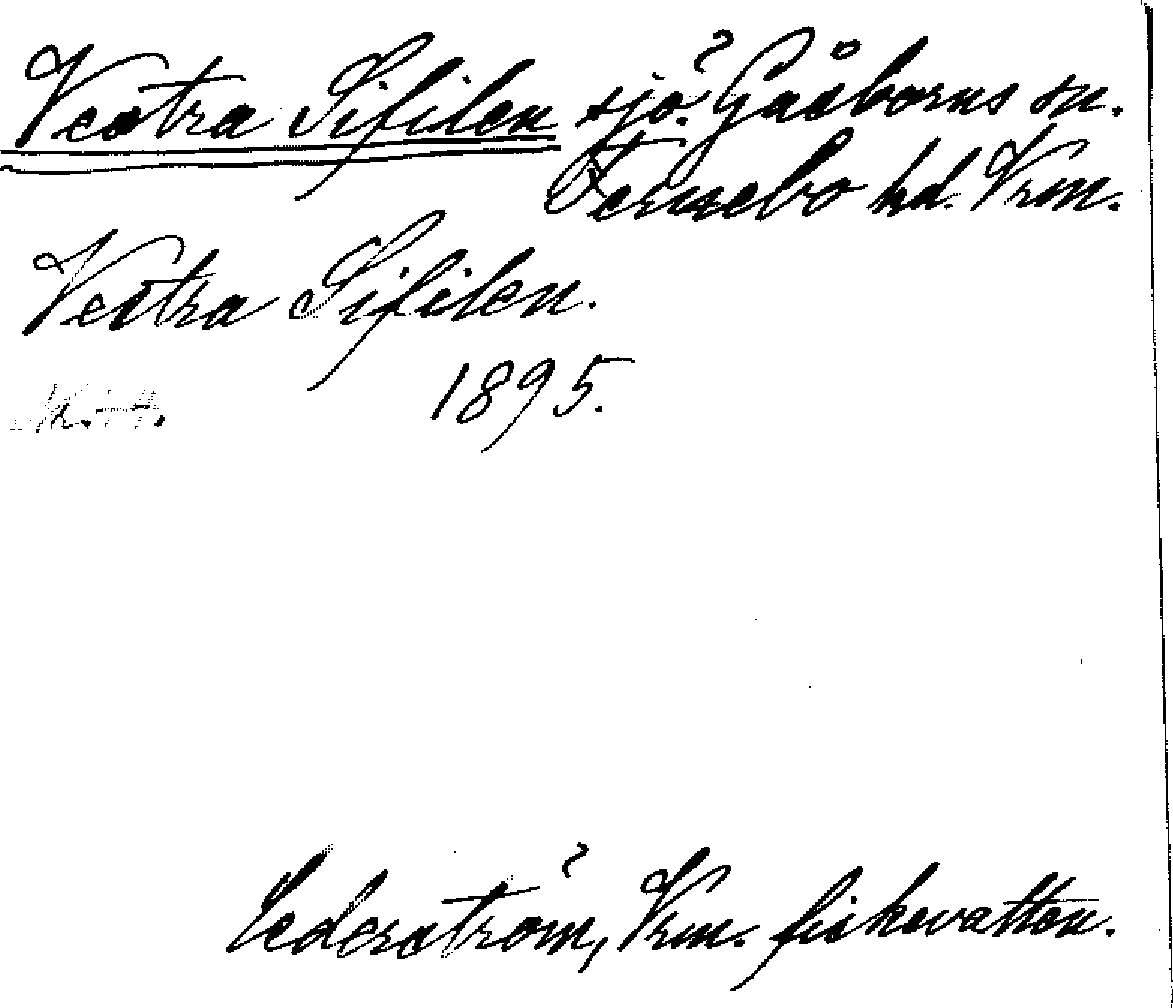 Vestra Sifilen sjö? Gåsborns sn.
Fernebo hd. Vrm.
Vestra Sifilen.
1895.
Cederström, Vrm. fiskevatten.